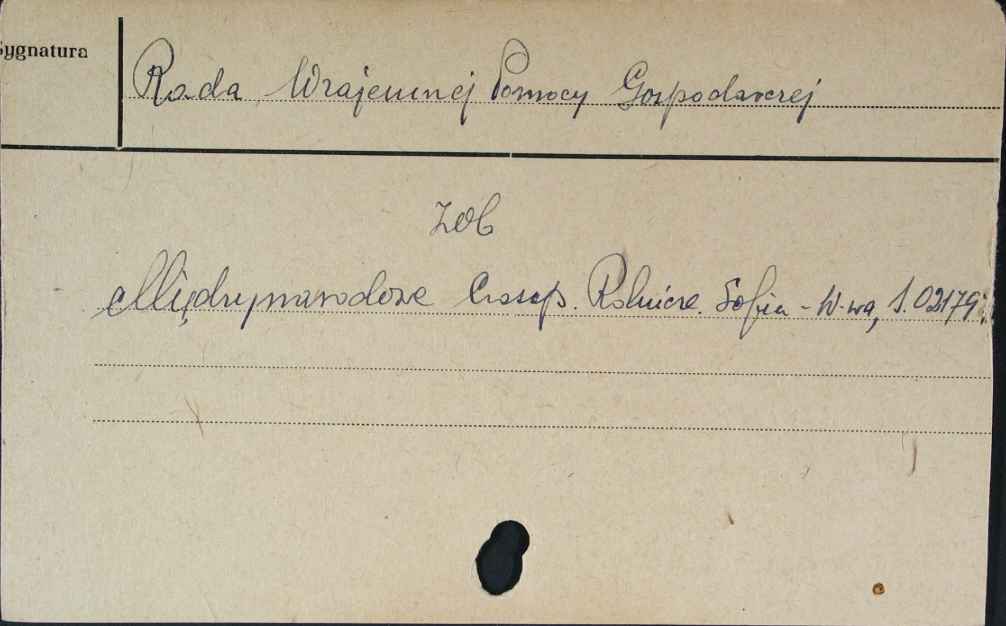 Sygnatura
Rada Wzajemnej Pomocy Gospodarczej
zob
Międzynarodowe Czasop. Rolnicze. Sofia - W-wa, S.02179